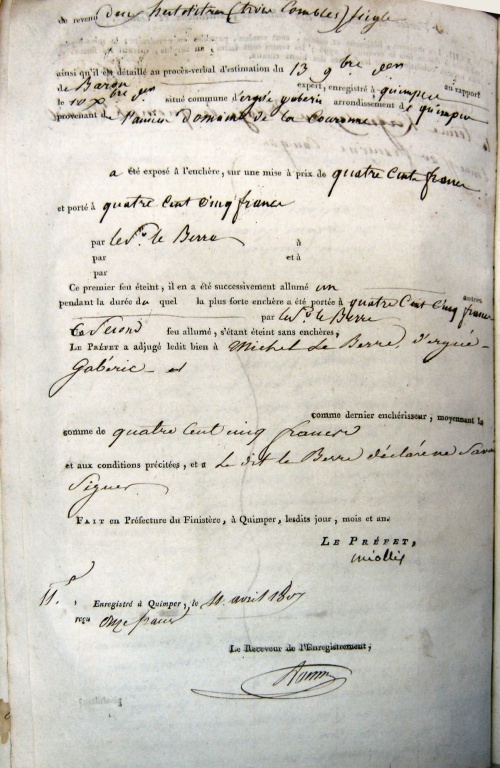 de revenu deux hectolitres (trois Combles) seigle
ainsi qu'il est détaillé au procès-verbal d'estimation du 13 9bre dern
de Baron expert, enregistré à quimper au rapport
le 10 Xbre situé commune d'ergué gaberic arrondissement de quimper
provenant de l'ancien Domaine de la Couronne
a été exposé à l'enchère, sur une mise à prix de quatre Cents francs
et porté à quatre Cent Cinq francs
par le Sr. le Berre à
par et à
par
Ce premier feu éteint, il en a été successivement allumé un autres
pendant la durée du quel la plus forte enchère a été portée à quatre Cent Cinq francs
par le Sr. le Berre
Ce Second feu allumé, s'étant éteint sans enchères,
LE PRÉFET a adjugé ledit bien à Michel Le Berre, d'ergué-
Gabéric et
comme dernier enchérisseur, moyennant la
somme de quatre Cent cinq francs
et aux conditions précitées, et a Le dit le Berre déclaré ne Savoir
Signer
FAIT en Préfecture du Finistère, à Quimper, lesdits jour, mois et an.
LE PRÉFET,
Miollis
11.f Enregistré à Quimper, le 11 avril 1807
reçu onze francs
Le Receveur de l'Enregistrement,